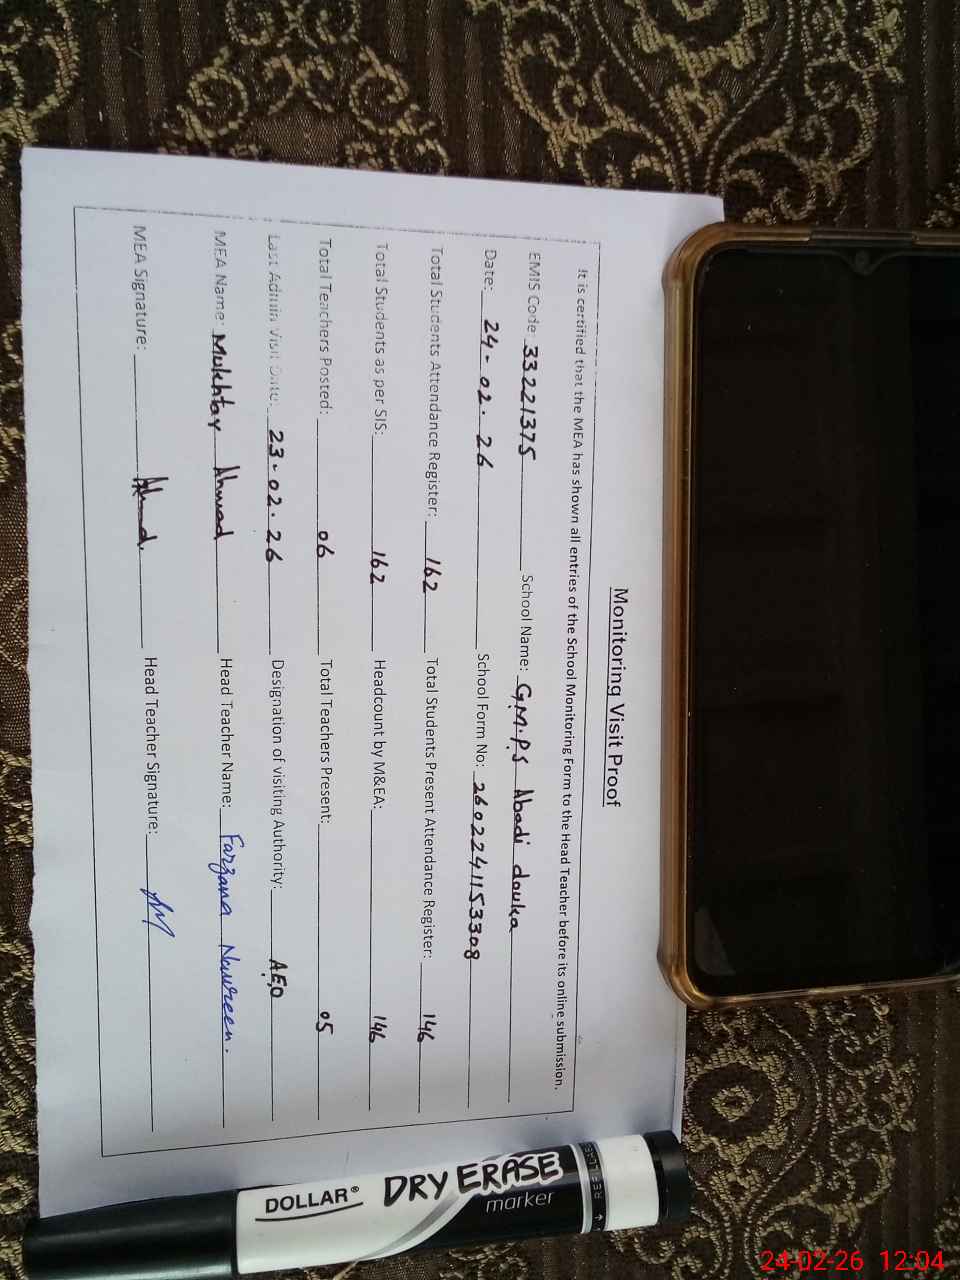 Monitoring Visit Proof
It is certified that the MEA has shown all entries of the School Monitoring Form to the Head Teacher before its online submission.
EMIS Code: 33221375 School Name: G.M.P.S Abadi douka
Date: 24-02-26 School Form No: 2602241153308
Total Students Attendance Register: 162 Total Students Present Attendance Register: 146
Total Students as per SIS: 162 Headcount by M&EA: 146
Total Teachers Posted: 06 Total Teachers Present: 05
Last Admin Visit Date: 23.02.26 Designation of visiting Authority: A.E.O
MEA Name: Mukhtar Ahmad Head Teacher Name: Farzana Naureen.
MEA Signature: Ahmad. Head Teacher Signature:
DOLLAR® DRY ERASE
marker
24-02-26 12:04